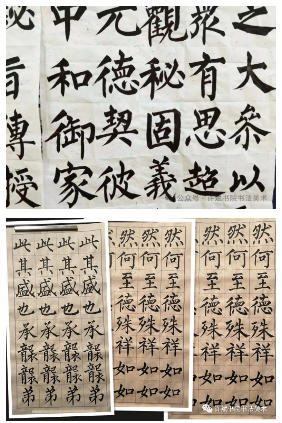 之大叅以
眾有思超
觀秘固義
元德契彼
中和御家
旨傳授
公众号·许庭书院书法美术
此其盛也承龈龈弟
此其盛也承龈龈弟
此其盛也承龈龈弟
此其盛也承龈龈弟
然何至德殊祥如如
然何至德殊祥如如
然何至德殊祥如如
然何至德殊祥如如
然何至德殊祥如如
然何至德殊祥如如